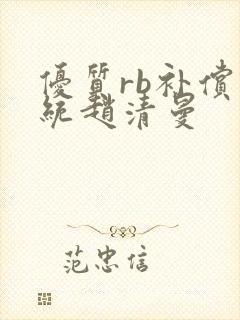 優質rb补償
統趙清曼
范忠信